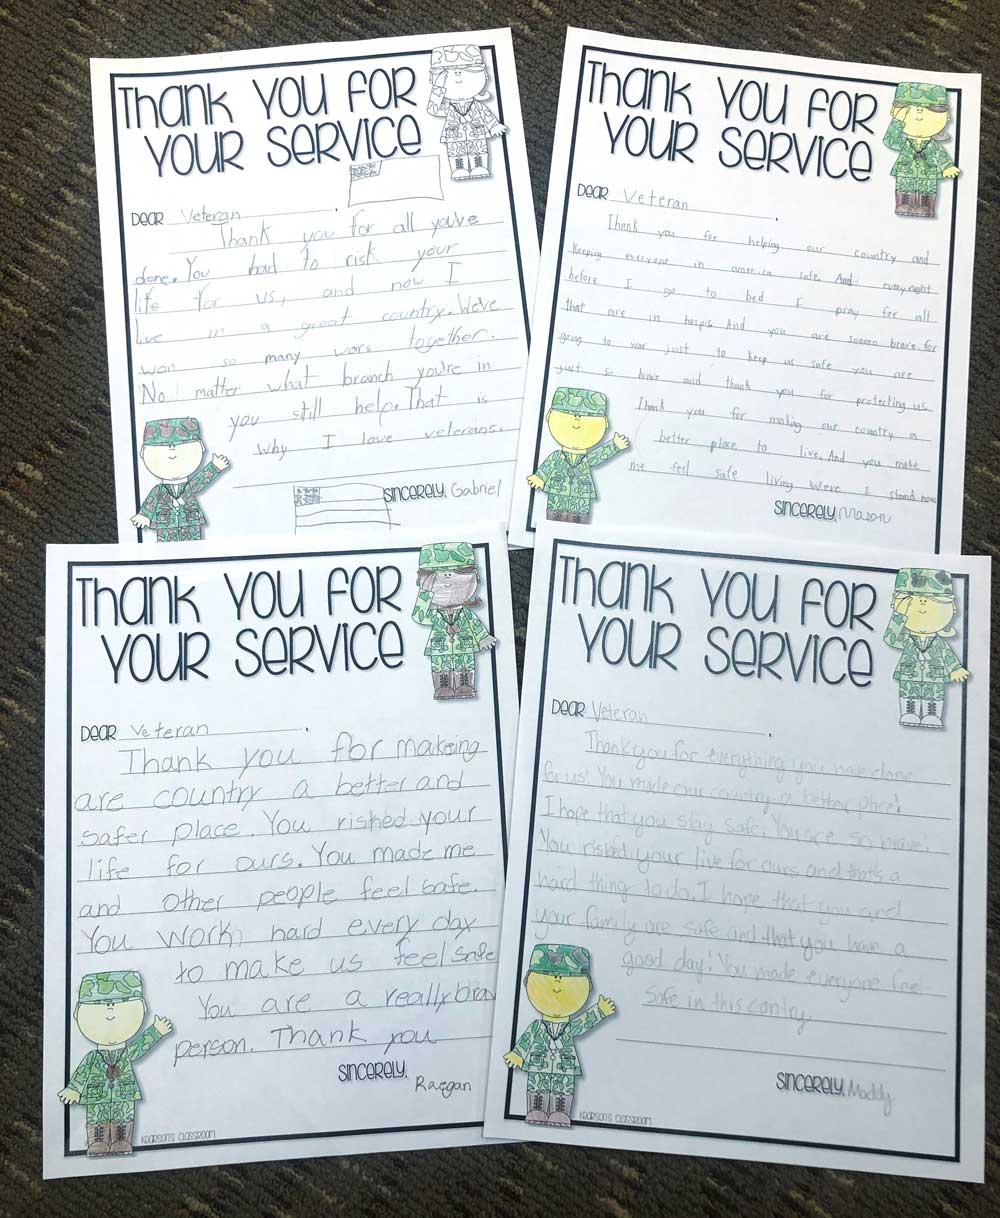 Thank You For
Your Service
Dear Veteran,
Thank you for all you've
done. You had to risk your
life for us, and now I
live in a great country. We've
won so many wars together.
No matter what branch you're in
you still help. That is
why I love veterans.
Sincerely, Gabriel
Thank You For
Your Service
Dear Veteran,
Thank you for helping our country and
keeping everyone in america safe. And every night
before I go to bed I pray for all
that are in hospis. And you are soooo brave for
going to war just to keep us safe you are
just so brave and thank you for protecting us.
Thank you for making our country a
better place to live. And you make
me feel safe living were I stand now
Sincerely, Mason
Thank You For
Your Service
Dear Veteran
Thank you for makeing
are country a better and
safer place. You rished your
life for ours. You made me
and other people feel safe.
You work hard every day
to make us feel safe
You are a really brav
person. Thank you
Sincerely,
Raegan
Kearson's Classroom
Thank You For
Your Service
Dear Veteran,
Thank you for everything you have done
for us! You made our country a better place!
I hope that you stay safe. You are so brave.
You risked your live for ours and that's a
hard thing to do. I hope that you and
your family are safe and that you have a
good day! You made everyone feel
safe in this contry.
Sincerely, Maddy
Kearson's Classroom